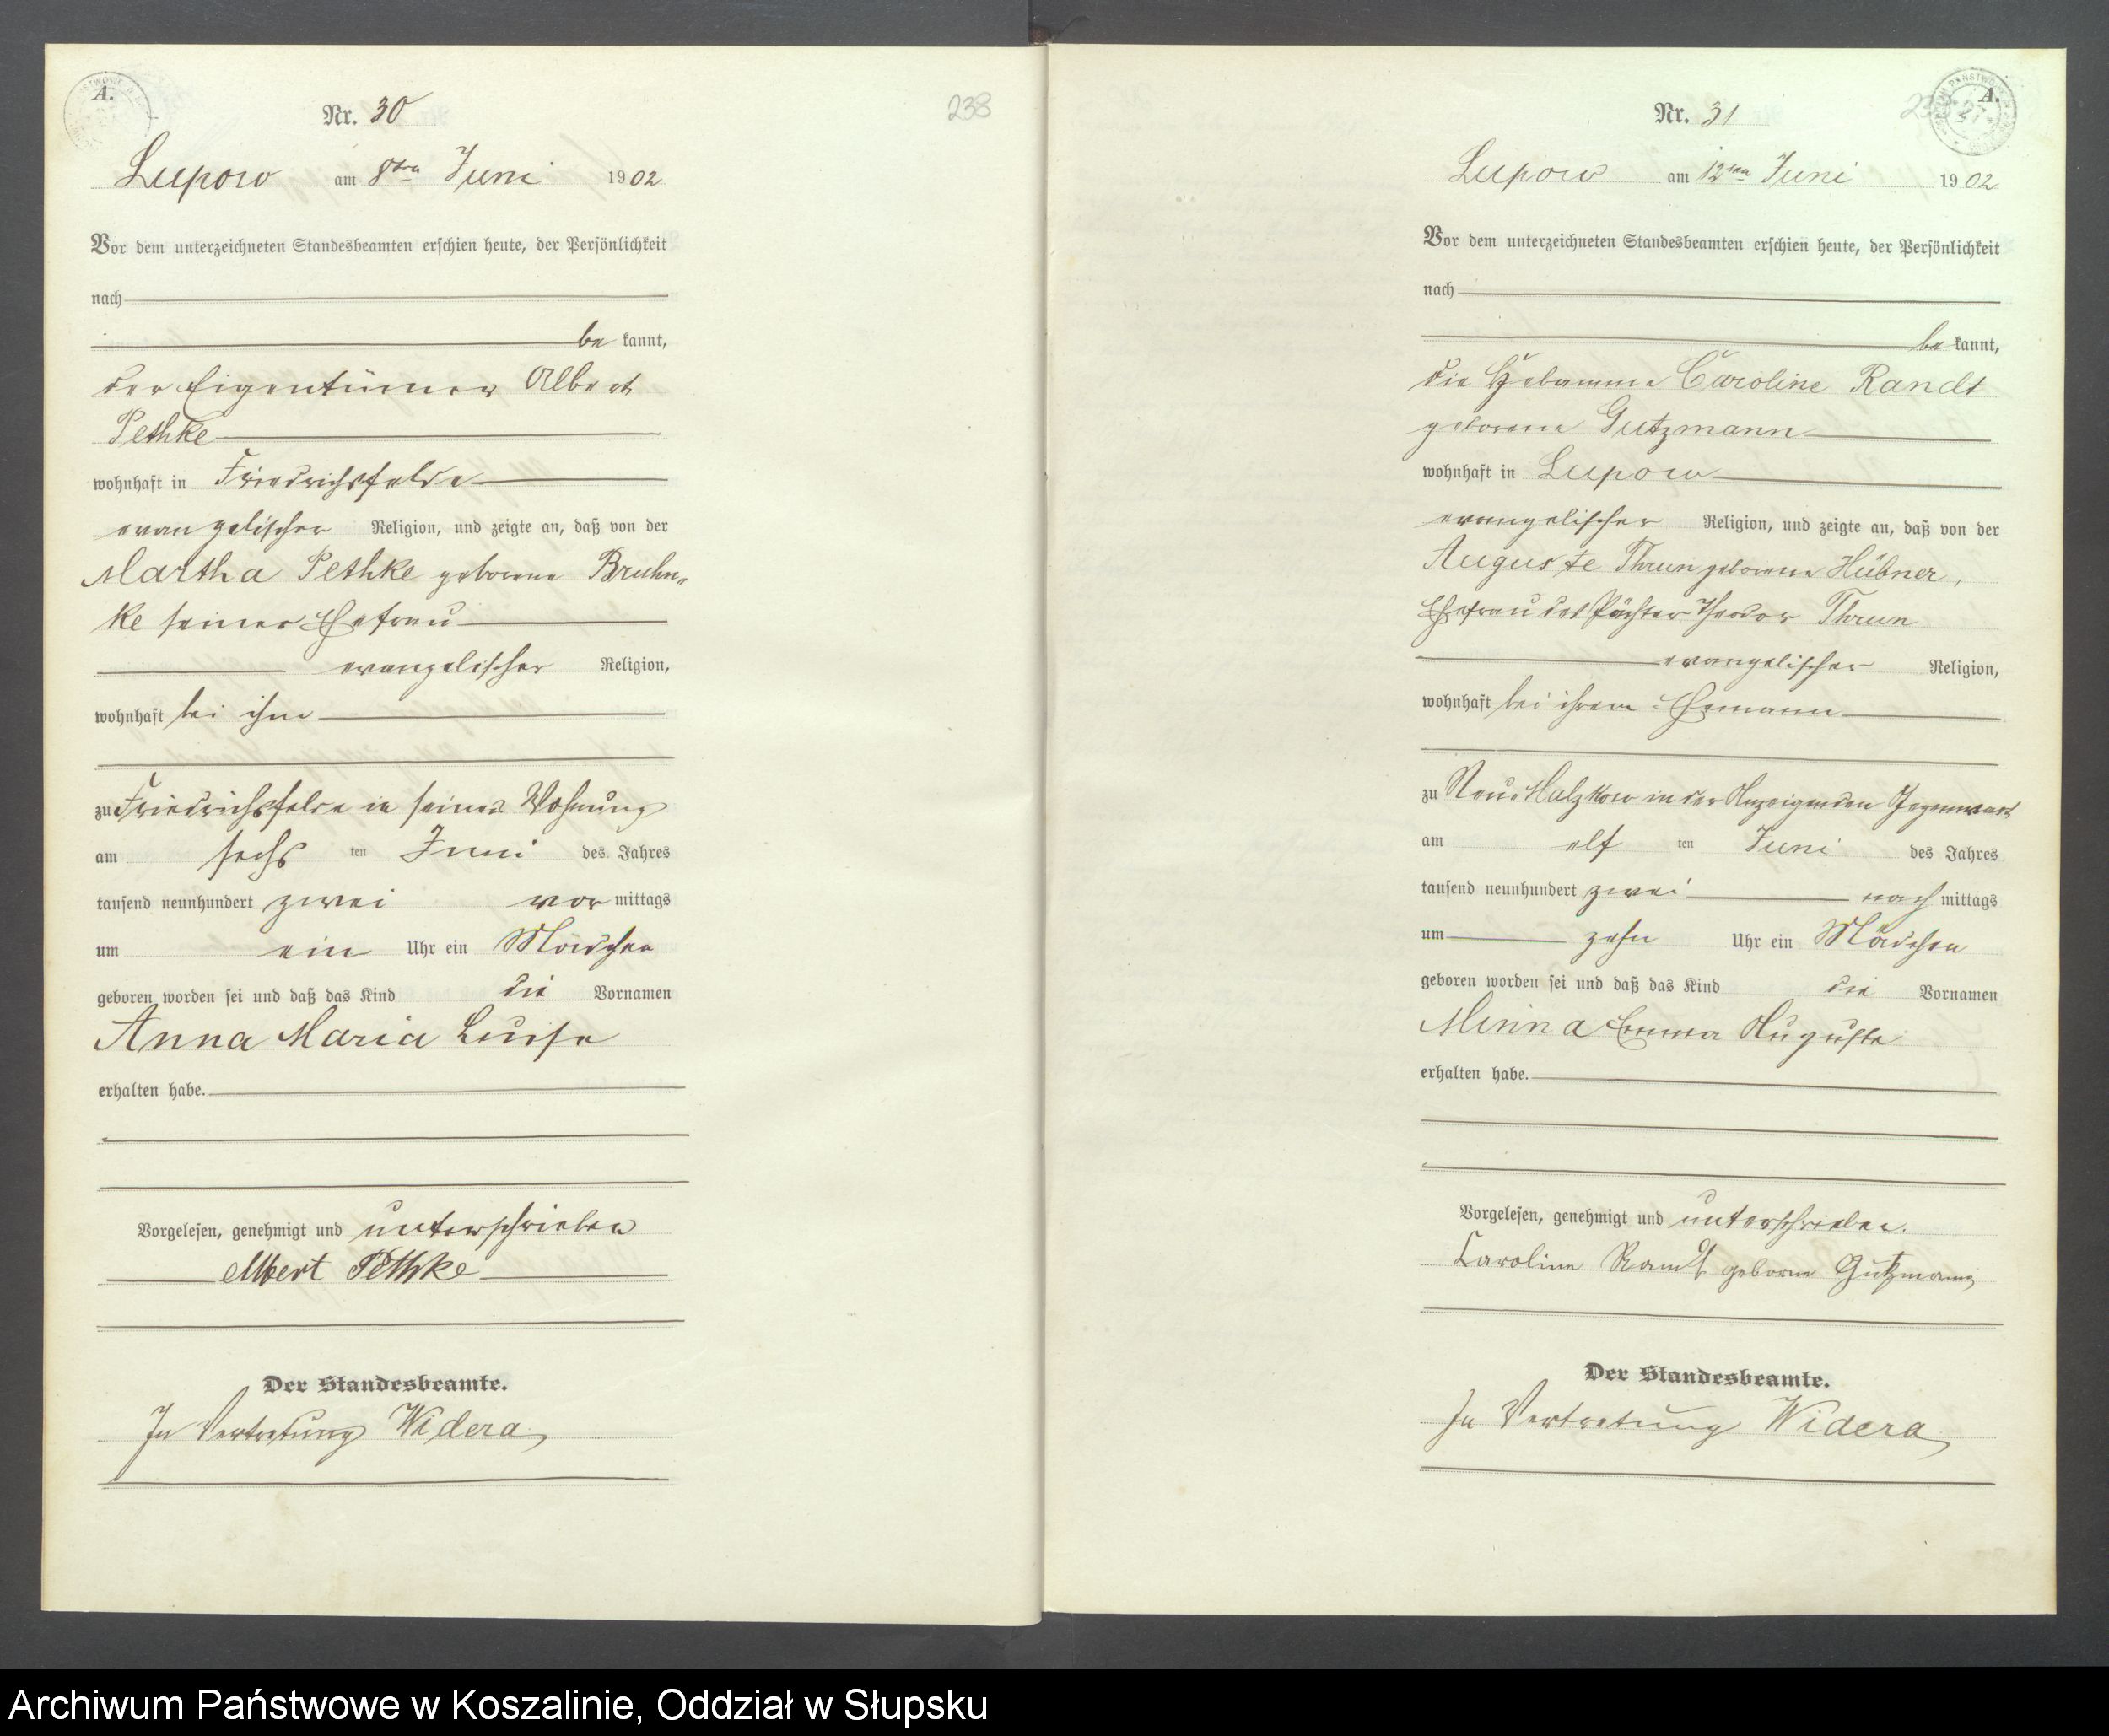 A.
Nr. 30
238
Lupow am 8ten Juni 1902
Vor dem unterzeichneten Standesbeamten erschien heute, der Persönlichkeit
nach
be kannt,
der Eigentümer Albert
Pethke
wohnhaft in Friedrichsfelde
evangelischer Religion, und zeigte an, daß von der
Martha Pethke geborene Bruhn-
ke seiner Ehefrau
evangelischer Religion,
wohnhaft bei ihm
zu Friedrichsfelde in seiner Wohnung
am sechs ten Juni des Jahres
tausend neunhundert zwei vor mittags
um ein Uhr ein Mädchen
geboren worden sei und daß das Kind die Vornamen
Anna Maria Luise
erhalten habe.
Vorgelesen, genehmigt und unterschrieben
Albert Pethke
Der Standesbeamte.
In Vertretung Widera
A.
Nr. 31
Lupow am 12ten Juni 1902
Vor dem unterzeichneten Standesbeamten erschien heute, der Persönlichkeit
nach
be kannt,
die Hebamme Caroline Randt
geborene Gutzmann
wohnhaft in Lupow
evangelischer Religion, und zeigte an, daß von der
Auguste Thrun geborene Hübner,
Ehefrau des Pächter Theodor Thrun
evangelischer Religion,
wohnhaft bei ihrem Ehemann
zu Neu-Malzkow in der Anzeigenden Gegenwart
am elf ten Juni des Jahres
tausend neunhundert zwei nach mittags
um zehn Uhr ein Mädchen
geboren worden sei und daß das Kind die Vornamen
Minna Emma Auguste
erhalten habe.
Vorgelesen, genehmigt und unterschrieben.
Caroline Randt geborne Gutzmann
Der Standesbeamte.
In Vertretung Widera
Archiwum Państwowe w Koszalinie, Oddział w Słupsku